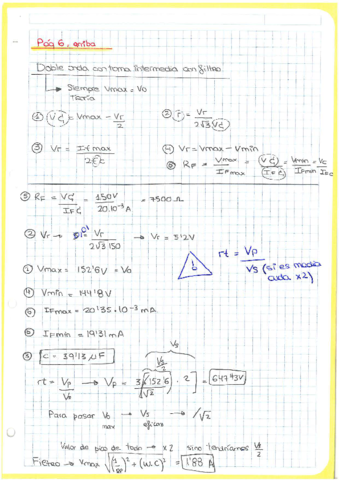 Pág 6. arriba
Doble onda con toma intermedia con filtro.
→ Siempre Vmax = Vo
Teoría
① Vcc = Vmax - Vr/2   ② r = Vr/(2√3 Vcc)
③ Vr = If max/(2fC)   ④ Vr = Vmax - Vmin
⑤ RF = Vmax/IFmax = Vcc/IFcc = Vmin/IFmin
⑤ RF = Vcc/IFcc = 150V/20·10⁻³A = 7500Ω
② Vr → = Vr/(2√3·150) → Vr = 5'2V
rt = Vp/Vs (si es media onda x2)
① Vmax = 152'6V = Vo
④ Vmin = 147'8V
⑤ IFmax = 20'35·10⁻³ mA
⑥ IFmin = 19'31 mA
③ C = 39'13 μF
rt = Vp/Vs → Vp = 3 (152'6/√2 · 2) = 647'43V
Para pasar Vo max → Vs eficaz → /√2
Valor de pico de todo → x2 sino tendríamos Vs/2
Filtro → Vmax √((1/RF)² + (WC)²) = 1'88 A